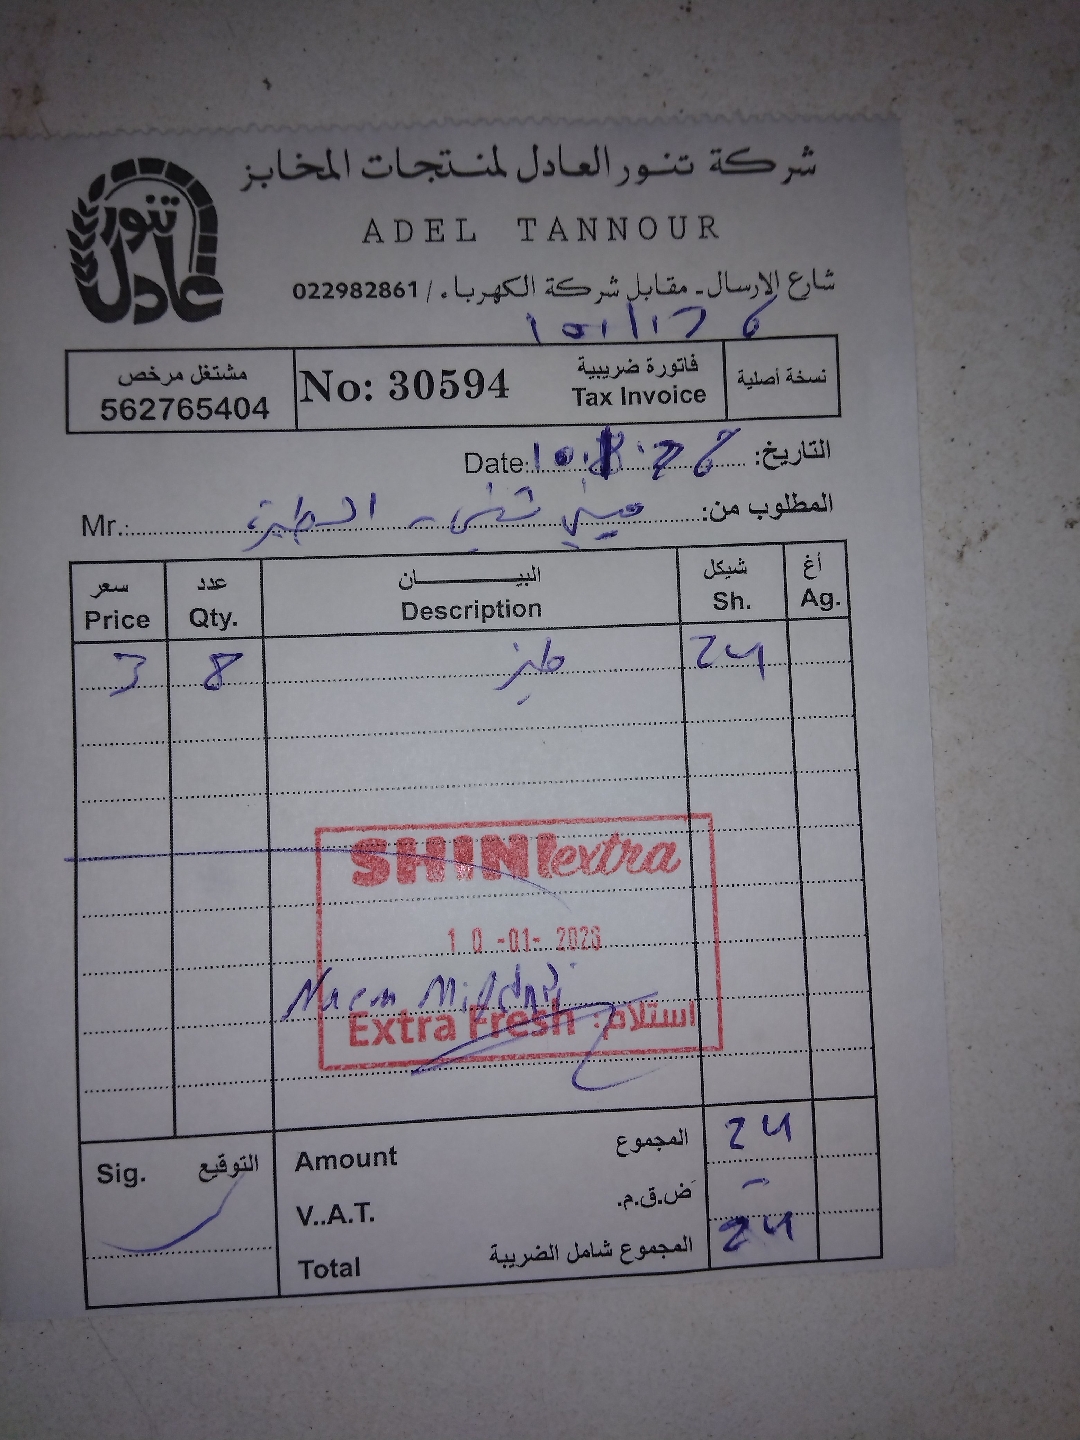 شركة تنور العادل لمنتجات المخابز
تنور عادل
ADEL TANNOUR
شارع الارسال - مقابل شركة الكهرباء / 022982861
مشتغل مرخص
562765404
No: 30594
فاتورة ضريبية
Tax Invoice
نسخة أصلية
Date: التاريخ:
Mr.: المطلوب من:
سعر عدد البيــــــان شيكل أغ
Price Qty. Description Sh. Ag.
3 8 24
SHINI extra
10-01-2023
Naem
Extra Fresh استلام:
Sig. التوقيع
Amount المجموع 24
V..A.T. ض.ق.م. -
Total المجموع شامل الضريبة 24